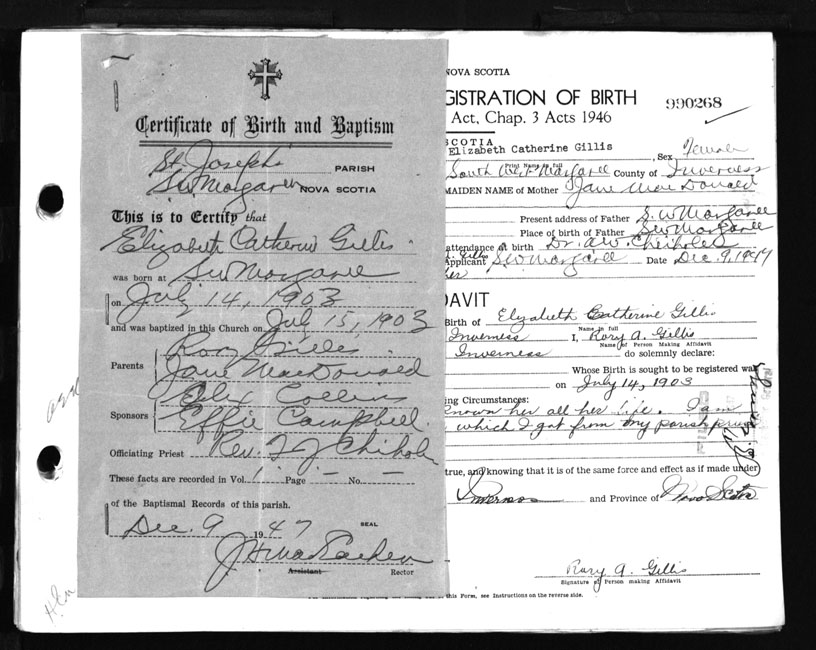 Certificate of Birth and Baptism
St. Joseph's PARISH
S.W. Margaree NOVA SCOTIA
This is to Certify that
Elizabeth Catherine Gillis
was born at S.W. Margaree
on July 14, 1903
and was baptized in this Church on July 15, 1903
Parents Rory Gillis
Jane MacDonald
Sponsors Collins
Effie Campbell
Officiating Priest Rev. Chisholm
These facts are recorded in Vol. Page — No. —
of the Baptismal Records of this parish.
Dec. 9 1947 SEAL
J H MacEachen
Assistant Rector
NOVA SCOTIA
GISTRATION OF BIRTH 990268
Act, Chap. 3 Acts 1946
SCOTIA
Elizabeth Catherine Gillis , Sex Female
Print Name in full
South West Margaree County of Inverness
MAIDEN NAME of Mother Jane MacDonald
Present address of Father S.W Margaree
Place of birth of Father S.W Margaree
attendance at birth Dr. A.W. Chisholm
Applicant S.W Margaree Date Dec. 9, 1947
DAVIT
Birth of Elizabeth Catherine Gillis
Name in full
Inverness I, Rory A. Gillis
Name of Person Making Affidavit
Inverness do solemnly declare:
Whose Birth is sought to be registered was
on July 14, 1903
ing Circumstances:
known her all her life. I am
which I got from my parish priest
true, and knowing that it is of the same force and effect as if made under
Inverness and Province of Nova Scotia
Rory A. Gillis
Signature of Person making Affidavit
of this Form, see Instructions on the reverse side.